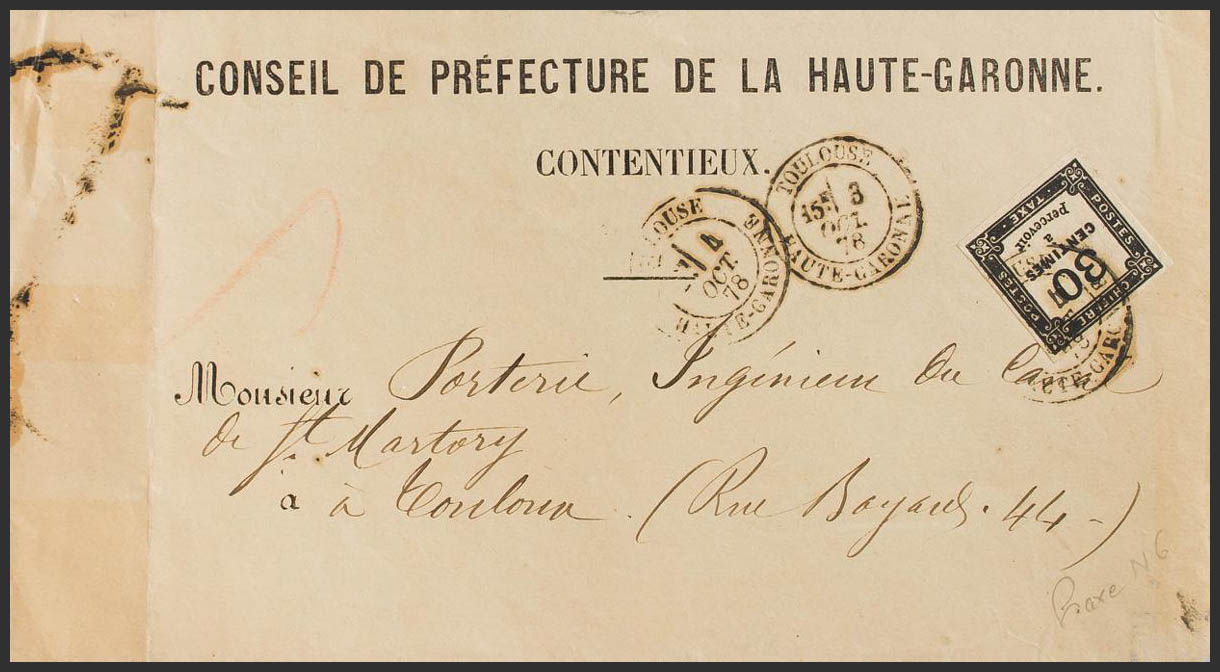 CONSEIL DE PRÉFECTURE DE LA HAUTE-GARONNE.
CONTENTIEUX.
TOULOUSE
3
OCT.
78
HAUTE-GARONNE
4
OCT.
78
HAUTE-GARONNE
CHIFFRE TAXE
POSTES
POSTES
30
CENTIMES
à
percevoir
Monsieur Porterie, Ingénieur du Canal
de St. Martory
a à Toulouse. (Rue Bayard. 44-)